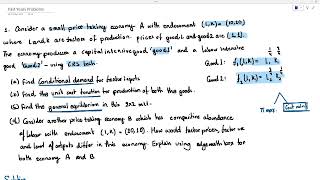 Past Years Problems
1. Consider a small price taking economy A with endowment (L,K) = (10,10)
where Land K are factors of production. prices of good 1 and good 2 are (1,1).
The economy produce a capital intensive good 'good 1' and a labour intensive
good 'good 2' using CRS tech.
Good 1: f₁(L,K) = L K
Good 2: f₂(L,K) = L K
(a) Find conditional demand for factor inputs
(b) Find the unit cost function for production of both the good.
(c) Find the general equilibrium in this 2x2 model.
Π max. Cost mini
(d) Consider another price taking economy B which has comparitive abundance
of labour with endowment (L,K) = (20,10). How would factor prices, factor use
and level of outputs differ in this economy. Explain using edgeworth box for
both economy A and B.